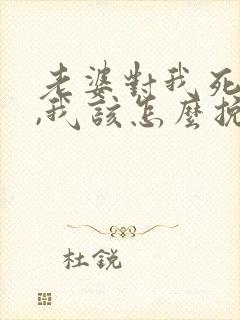 老婆對我死
,我該怎麼挽
杜銳